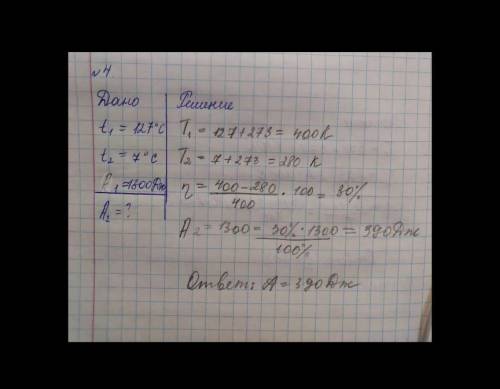 №4.
Дано
t₁ = 127°C
t₂ = 7°C
=1300Дж
A₂ = ?
Решение
T₁ = 127+273 = 400К
T₂ = 7+273 = 280 К
η = 400-280/400 · 100 = 30%
A₂ = 1300 = 30%·1300/100% = 390Дж
Ответ: A = 390Дж